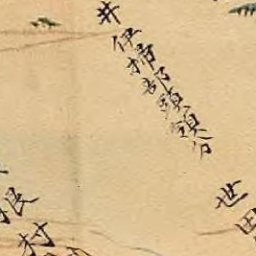 井伊掃部頭領分
世田
根村